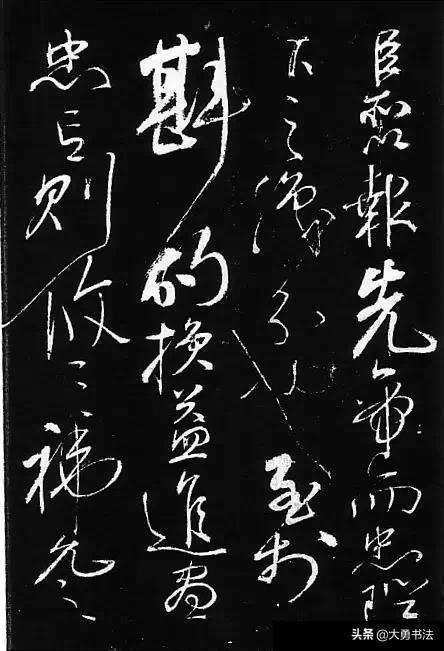 臣所以報先帝而忠陛
下之職分也至於
斟酌損益進盡
忠言則攸之禕允之
头条 @大勇书法